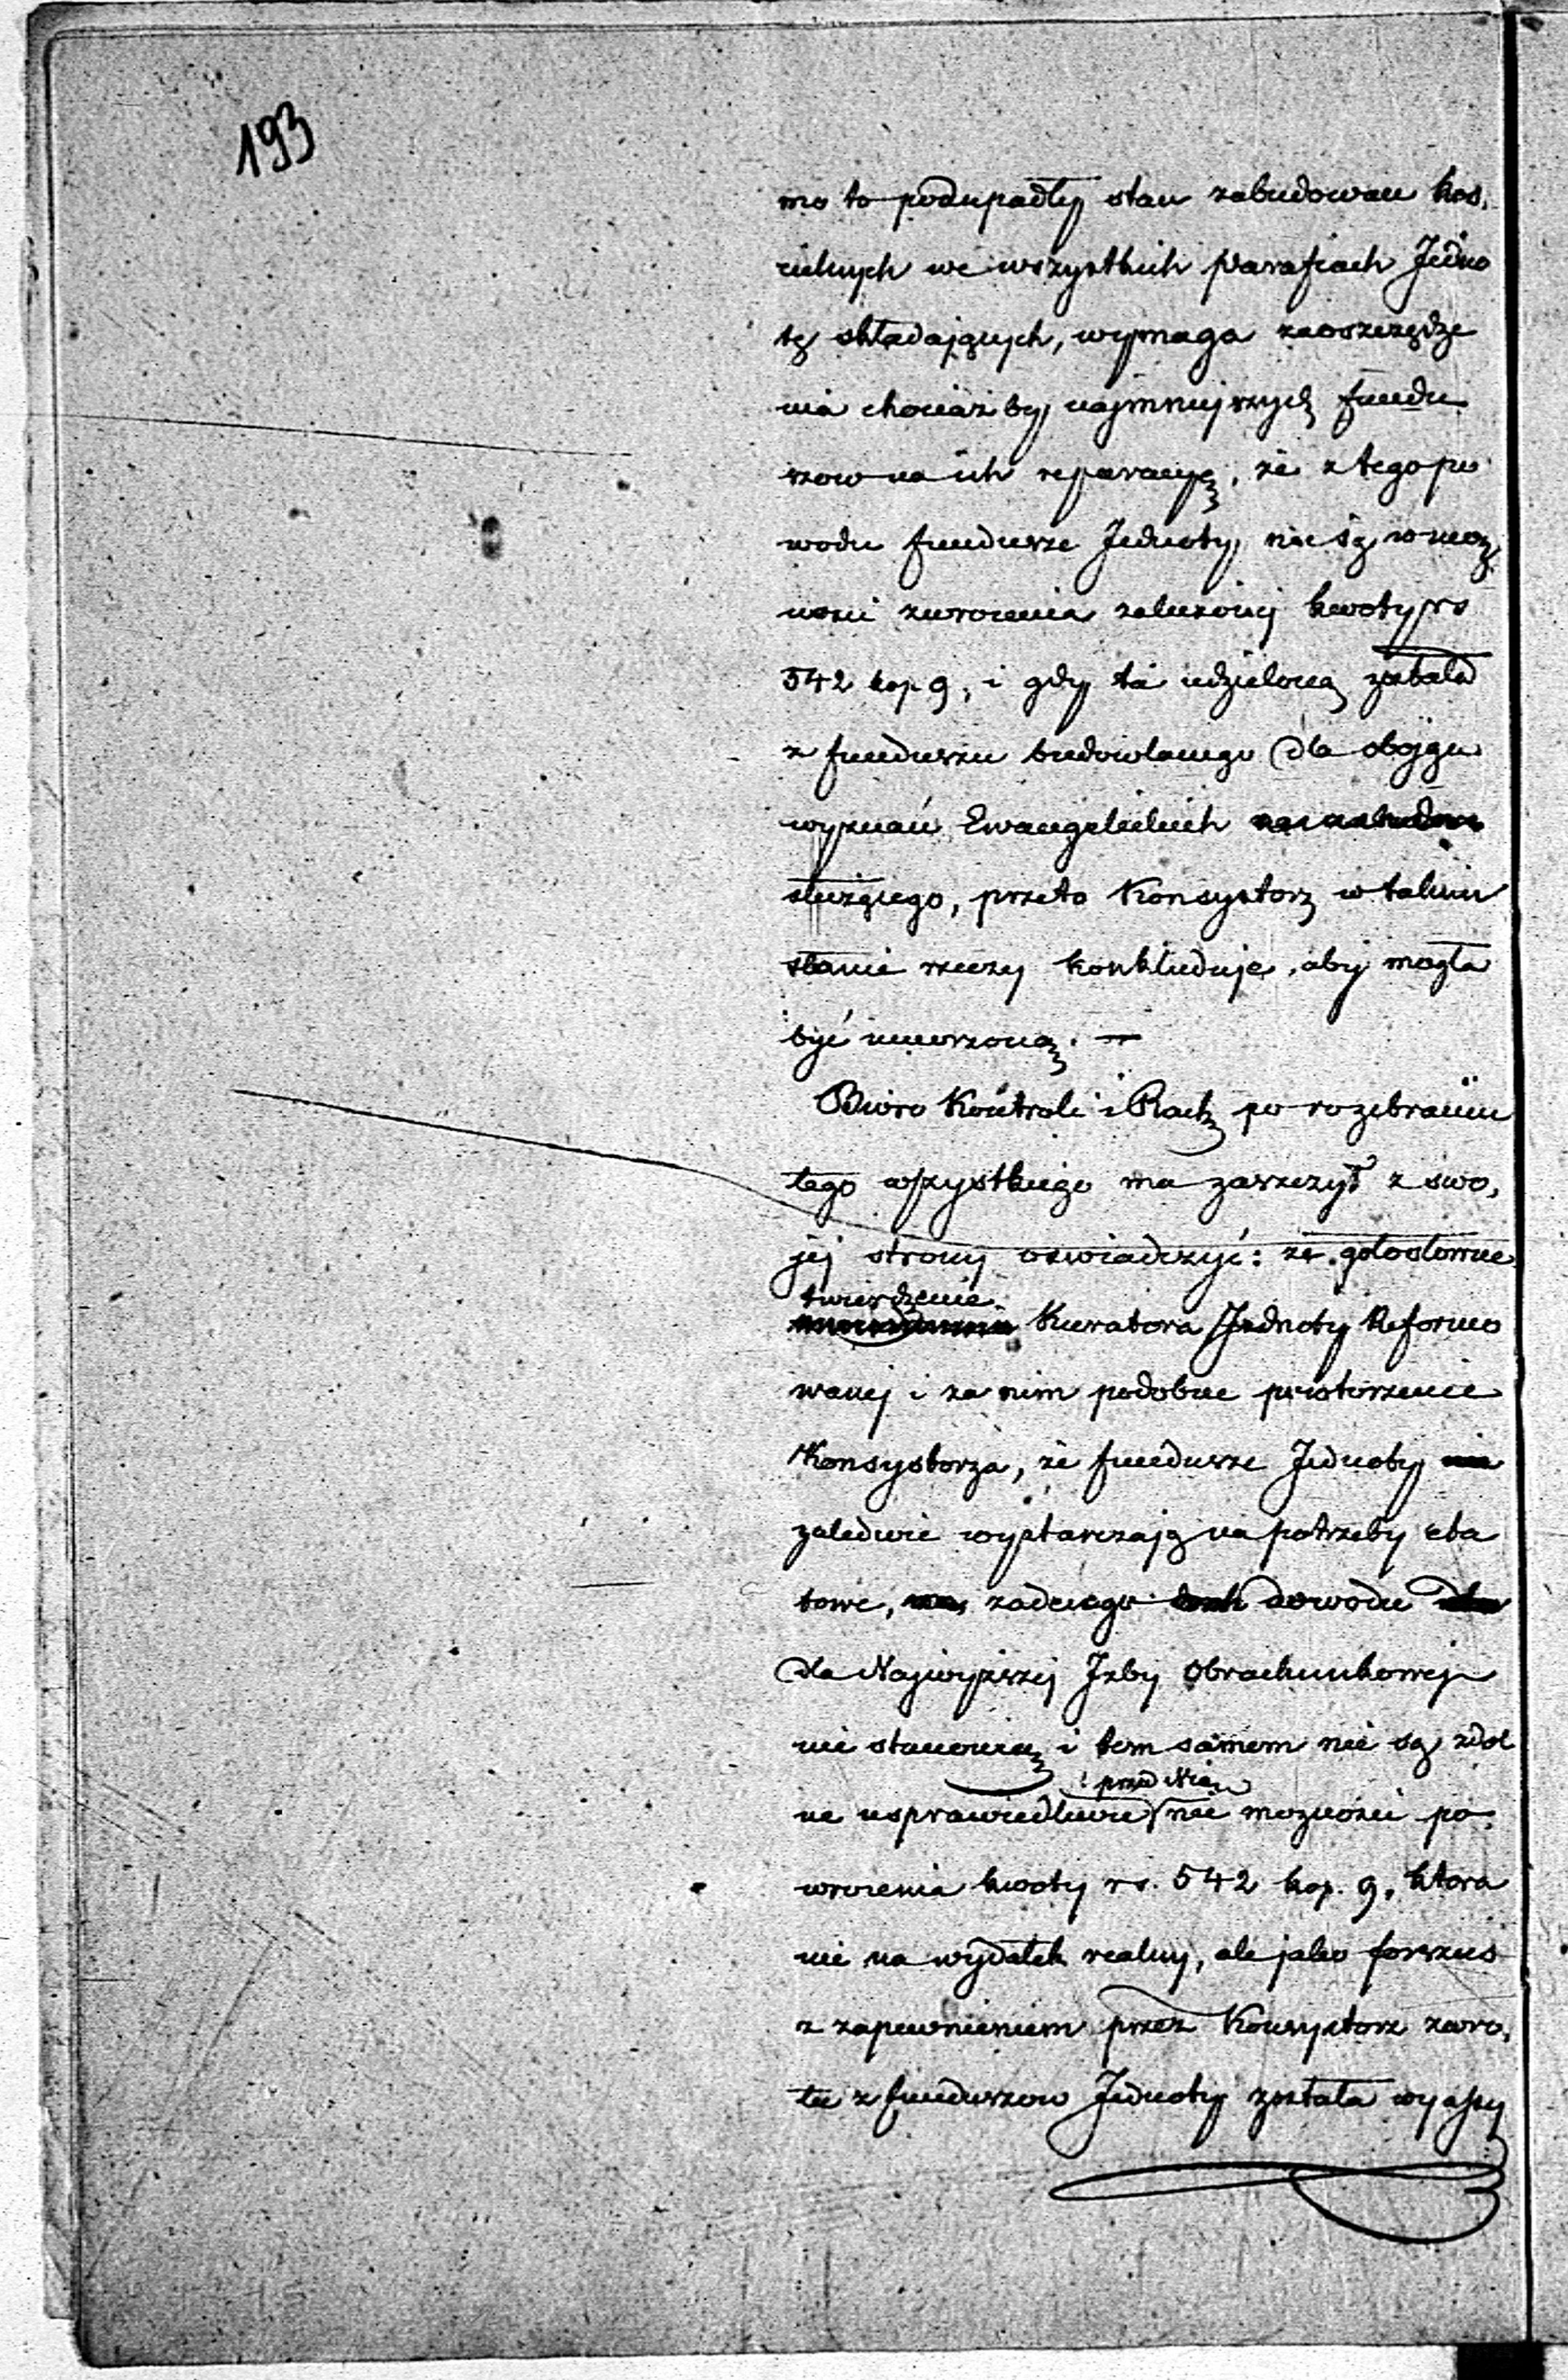 193
mo to podupadły stan zabudowań koś,
cielnych we wszystkich parafiach Jedno
tę składających, wymaga zaoszczędze
nia chociażby najmniejszych fundu
szow na ich reparacyę, że z tego po
wodu fundusze Jednoty, nie są w moż
ności zwrocenia zaliczonej kwoty rs
542 kop. 9, i gdy ta udzieloną została
z funduszu budowlanego dla obojga
wyznań Ewangelickich
służącego, przeto Konsystorz w takim
stanie rzeczy konkluduje, aby mogła
być umorzoną. —
Biuro Kontroli i Rach po rozebraniu
tego wszystkiego ma zaszczyt z swo,
jej strony oswiadczyć: że gołosłowne
twierdzenie
Kuratora Jednoty Reformo
wanej i za nim podobne powtorzenie
Konsystorza, że fundusze Jednoty nie
zaledwie wystarczają na potrzeby eta
towe, żadnego dowodu
dla Najwyższej Izby Obrachunkowej
nie stanowią i tem samem nie są zdol
przed Nią
ne usprawiedliwić nie możności po
wrocenia kwoty rs. 542 kop. 9, ktora
nie na wydatek realny, ale jako forszus
z zapewnieniem przez Konsystorz zwro,
tu z funduszow Jednoty została wyassy